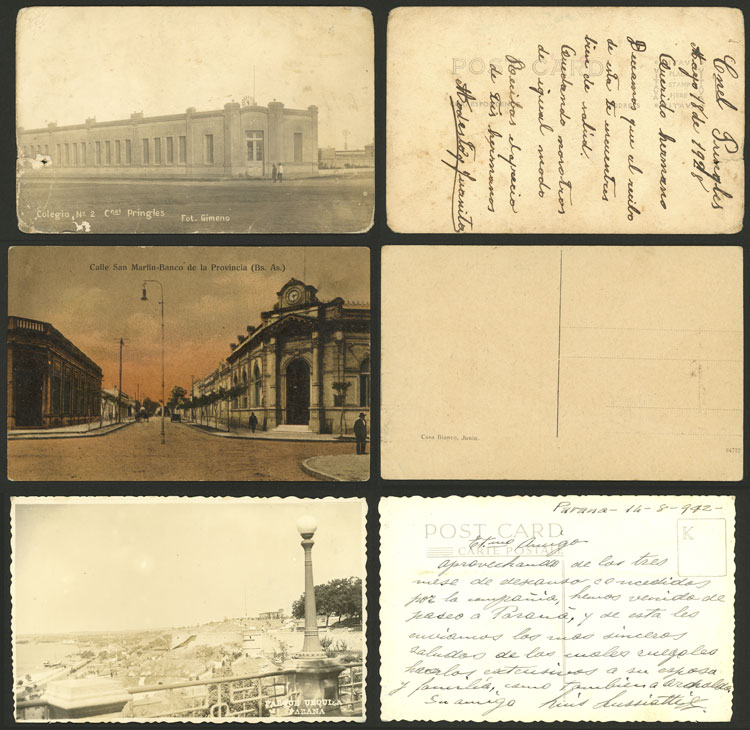 Colegio, Nº 2 Cnel Pringles
Fot. Gimeno
POST CARD
Cnel Pringles
Mayo 18 de 1928
Querido hermano
Deseamos que el recibo
de esta te encuentres
bien de salud.
Quedando nosotros
de igual modo
Recibas el aprecio
de tus hermanos
Modesta y Juanita
Calle San Martin-Banco de la Provincia (Bs. As.)
Casa Bianco, Junín.
PARQUE URQUIZA
PARANA
Parana - 14-8-942-
POST CARD
CARTE POSTALE
K
Amigo
aprovechando de los tres
mese de descanso concedidos
por la compañia, hemos venido de
paseo a Paraná, y de esta les
enviamos los mas sinceros
saludos de los cuales ruegole
hacerlos extensivos a su esposa
y familia, como tambien a
Su amigo Luis